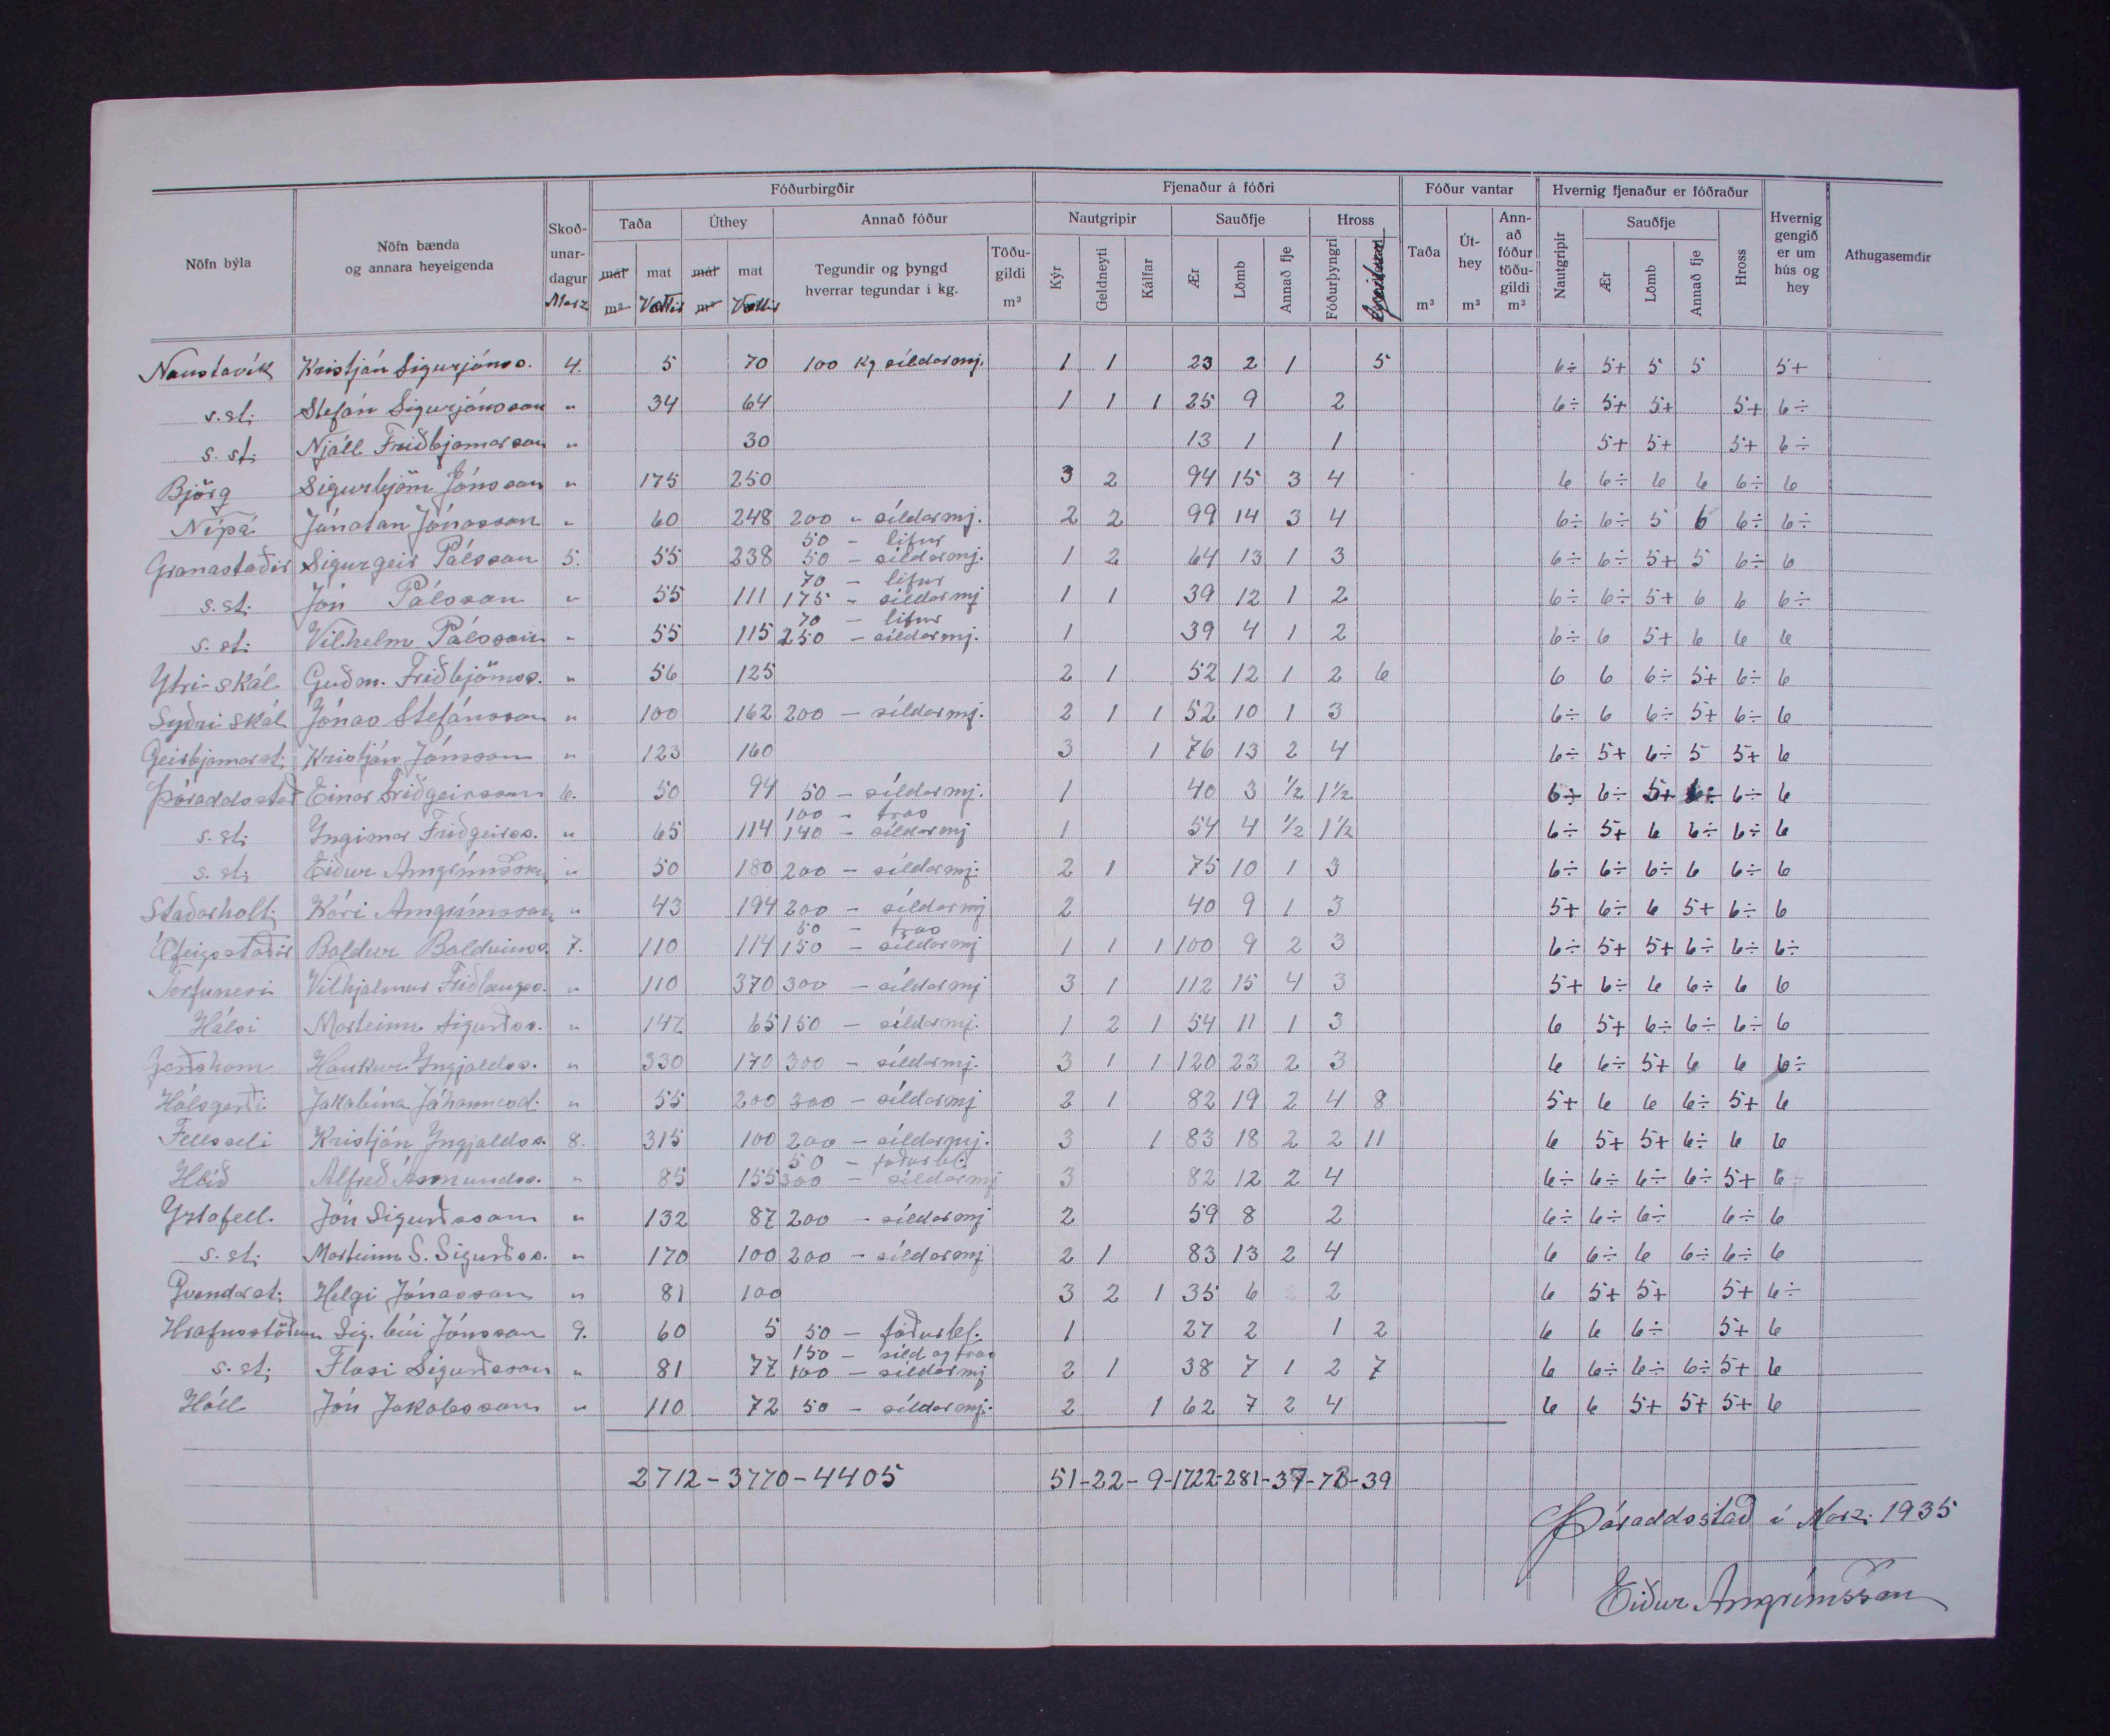 Fóðurbirgðir Fjenaður á fóðri Fóður vantar Hvernig fjenaður er fóðraður
Nöfn býla Nöfn bænda og annara heyeigenda Skoðunardagur Marz Taða Úthey Annað fóður Nautgripir Sauðfje Hross Taða m³ Úthey m³ Annað fóður töðugildi m³ Nautgripir Sauðfje Hross Hvernig gengið er um hús og hey Athugasemdir
mál m³ mat Vættir mál m³ mat Vættir Tegundir og þyngd hverrar tegundar í kg. Töðugildi m³ Kýr Geldneyti Kálfar Ær Lömb Annað fje Fóðurþyngri Ær Lömb Annað fje
Naustavík Kristján Sigurjónss. 4. 5 70 100 kg síldarmj. 1 1 23 2 1 5 6÷ 5+ 5 5 5+
s.st. Stefán Sigurjónsson " 34 64 1 1 1 25 9 2 6÷ 5+ 5+ 5+ 6÷
s.st. Njáll Friðbjarnarson " 30 13 1 1 5+ 5+ 5+ 6÷
Björg Sigurbjörn Jónsson " 175 250 3 2 94 15 3 4 6 6÷ 6 6 6÷ 6
Nípá Jónatan Jónasson " 60 248 200 " síldarmj. 2 2 99 14 3 4 6÷ 6÷ 5 6 6÷ 6÷
50 - lifur
Granastaðir Sigurgeir Pálsson 5. 55 238 50 - síldarmj. 1 2 64 13 1 3 6÷ 6÷ 5+ 5 6÷ 6
70 - lifur
s.st. Jón Pálsson " 55 111 175 - síldarmj 1 1 39 12 1 2 6÷ 6÷ 5+ 6 6 6÷
70 - lifur
s.st. Vilhelm Pálsson " 55 115 250 - síldarmj. 1 39 4 1 2 6÷ 6 5+ 6 6 6
Ytri-skál Guðm. Friðbjörnss. " 56 125 2 1 52 12 1 2 6 6 6 6÷ 5+ 6÷ 6
Syðri skál Jónas Stefánsson " 100 162 200 - síldarmj. 2 1 1 52 10 1 3 6÷ 6 6÷ 5+ 6÷ 6
Geirbjarnarst. Kristján Jónsson " 123 160 3 1 76 13 2 4 6÷ 5+ 6÷ 5 5+ 6
Þóroddsstað Einar Friðgeirsson 6. 50 94 50 - síldarmj. 1 40 3 1/2 1 1/2 6÷ 6÷ 5+ 6÷ 6÷ 6
100 - tros
s.st. Ingimar Friðgeirss. " 65 114 140 - síldarmj 1 54 4 1/2 1 1/2 6÷ 5+ 6 6÷ 6÷ 6
s.st. Eiður Arngrímsson " 50 180 200 - síldarmj. 2 1 75 10 1 3 6÷ 6÷ 6÷ 6 6÷ 6
Staðarholt. Kári Arngrímsson " 43 194 200 - síldarmj 2 40 9 1 3 5+ 6÷ 6 5+ 6÷ 6
50 - tros
Ófeigsstaðir Baldur Baldvinss. 7. 110 114 150 - síldarmj 1 1 1 100 9 2 3 6÷ 5+ 5+ 6÷ 6÷ 6÷
Torfunesi Vilhjálmur Friðlaugss. " 110 370 300 - síldarmj 3 1 112 15 4 3 5+ 6÷ 6 6÷ 6 6
Hálsi Marteinn Sigurðss. " 147 65 150 - síldarmj. 1 2 1 54 11 1 3 6 5+ 6÷ 6÷ 6÷ 6
Haukur Ingjaldss. " 330 170 300 - síldarmj. 3 1 1 120 23 2 3 6 6÷ 5+ 6 6 6÷
Hálsgerði Jakobína Jóhannesd. " 55 200 300 - síldarmj 2 1 82 19 2 4 8 5+ 6 6 6÷ 5+ 6
Fellsseli Kristján Ingjaldss. 8. 315 100 200 - síldarmj. 3 1 83 18 2 2 11 6 5+ 5+ 6÷ 6 6
50 - fóðurbl.
Hlíð Alfreð Ásmundss. " 85 155 300 - síldarmj 3 82 12 2 4 6÷ 6÷ 6÷ 6÷ 5+ 6
Ystafell. Jón Sigurðsson " 132 87 200 - síldarmj 2 59 8 2 6÷ 6÷ 6÷ 6÷ 6
s.st. Marteinn S. Sigurðss. " 170 100 200 - síldarmj 2 1 83 13 2 4 6 6÷ 6 6÷ 6÷ 6
Gvendarst. Helgi Jónasson " 81 100 3 2 1 35 6 2 6 5+ 5+ 5+ 6÷
Hrafnsstöðum Sig. búi Jónsson 9. 60 5 50 - fóðurbl. 1 27 2 1 2 6 6 6÷ 5+ 6
150 - síld og tros
s.st. Flosi Sigurðsson " 81 77 100 - síldarmj 2 1 38 7 1 2 7 6 6÷ 6÷ 6÷ 5+ 6
Hóll Jón Jakobsson " 110 72 50 - síldarmj. 2 1 62 7 2 4 6 6 5+ 5+ 5+ 6
2712 - 3770 - 4405 51-22-9-1722-281-37-73-39
Þóroddsstað í Marz. 1935
Eiður Arngrímsson